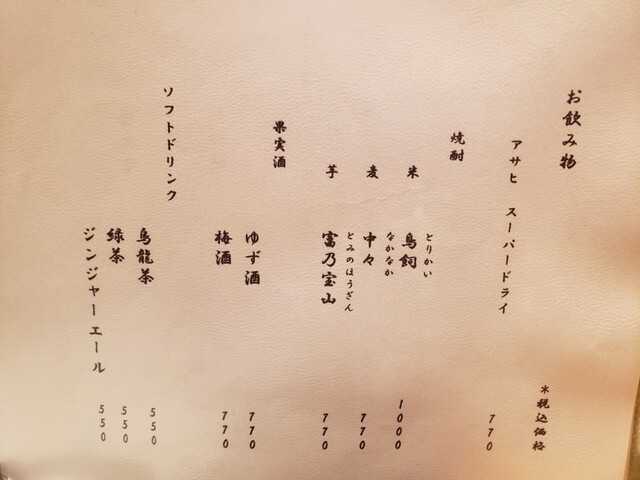 お飲み物
*税込価格
アサヒ スーパードライ 770
焼酎
米 鳥飼 1000
とりかい
麦 中々 770
なかなか
芋 富乃宝山 770
とみのほうざん
果実酒
ゆず酒 770
梅酒 770
ソフトドリンク
烏龍茶 550
緑茶 550
ジンジャーエール 550